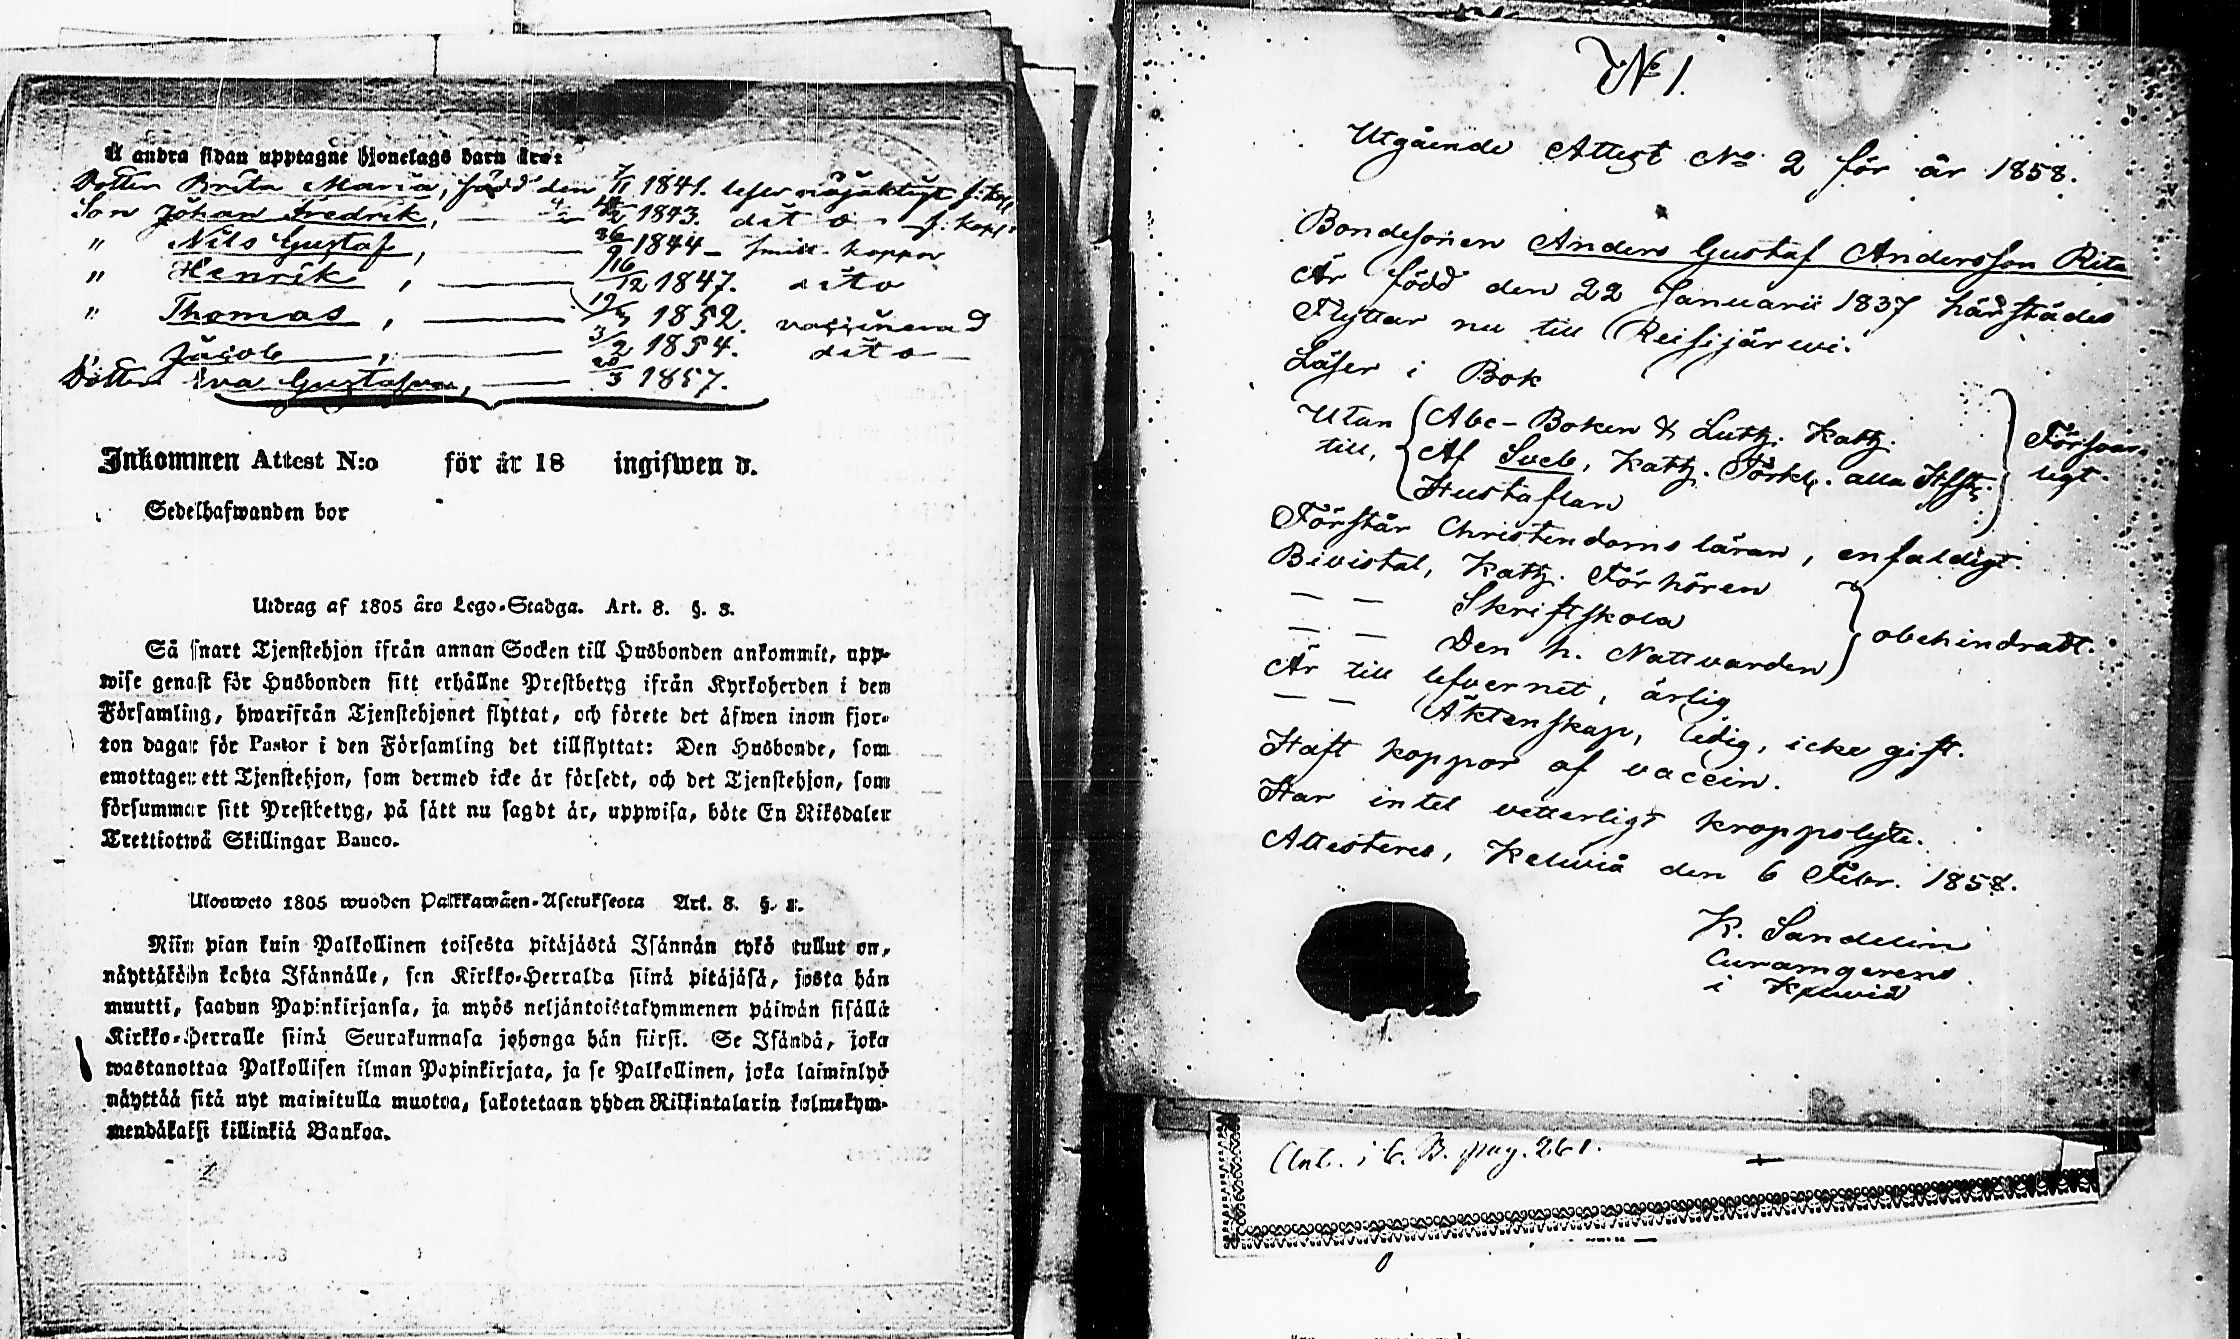 Å andra sidan upptagne hjonelags barn äro:
Dotter Brita Maria, född den 7/11 1841.
Son Johan Fredrik, 1843. dito
" Nils Gustaf, 1844 - koppor
" Henrik, 16/12 1847. dito
" Thomas, 1852. vaccinerad
" Jacob, 3/2 1854. dito
Dotter Eva Gustafva, 20/3 1857.
Inkommen Attest N:o för år 18 ingifwen d.
Sedelhafwanden bor
Utdrag af 1805 års Lego-Stadga. Art. 8. §. 3.
Så snart Tjenstehjon ifrån annan Socken till Husbonden ankommit, upp-
wise genast för Husbonden sitt erhållne Prestbetyg ifrån Kyrkoherden i den
Församling, hwarifrån Tjenstehjonet flyttat, och förete det äfwen inom fjor-
ton dagar för Pastor i den Församling det tillflyttat: Den Husbonde, som
emottager ett Tjenstehjon, som dermed icke är försedt, och det Tjenstehjon, som
försummar sitt Prestbetyg, på sätt nu sagdt är, uppwisa, böte En Riksdaler
Trettiotwå Skillingar Banco.
Ulosweto 1805 wuoden Palkkawäen-Asetuksesta Art. 8. §.
Niin pian kuin Palkollinen toisesta pitäjästä Isännän tykö tullut on,
näyttäköön kohta Isännälle, sen Kirkko-Herralda siinä pitäjäsä, josta hän
muutti, saadun Papinkirjansa, ja myös neljäntoistakymmenen päiwän sisällä
Kirkko-Herralle siinä Seurakunnasa johonga hän siirsi. Se Isändä, joka
wastanottaa Palkollisen ilman Papinkirjata, ja se Palkollinen, joka laiminlyö
näyttää sitä nyt mainitulla muotoa, sakotetaan yhden Riikintalarin kolmekym-
mendäkaksi killinkiä Bankoa.
No 1.
Utgående Attest No 2 för år 1858.
Bondesonen Anders Gustaf Andersson Rita
Är född den 22 Januarii 1837 härstädes
Flyttar nu till Reisijärwi.
Läser i Bok
Utan Abc-Boken & Luth. Kath. Försvar-
till, Af Sveb. Kath. Förkl. alla Hfst. ligt.
Hustaflan
Förstår Christendoms läran, enfaldigt.
Bivistat, Kath. Förhören
— — Skriftskola obehindradt.
— — Den h. Nattvarden
Är till lefvernet, ärlig
— — Äktenskap, ledig, icke gift.
Haft koppor af vaccin.
Har intet vetterligt kroppslyte.
Attesteras, Kelwiå den 6 Febr. 1858.
K. Sandelin
Curamgerens
i Kelwiå
Ant. i C. B. pag. 261.